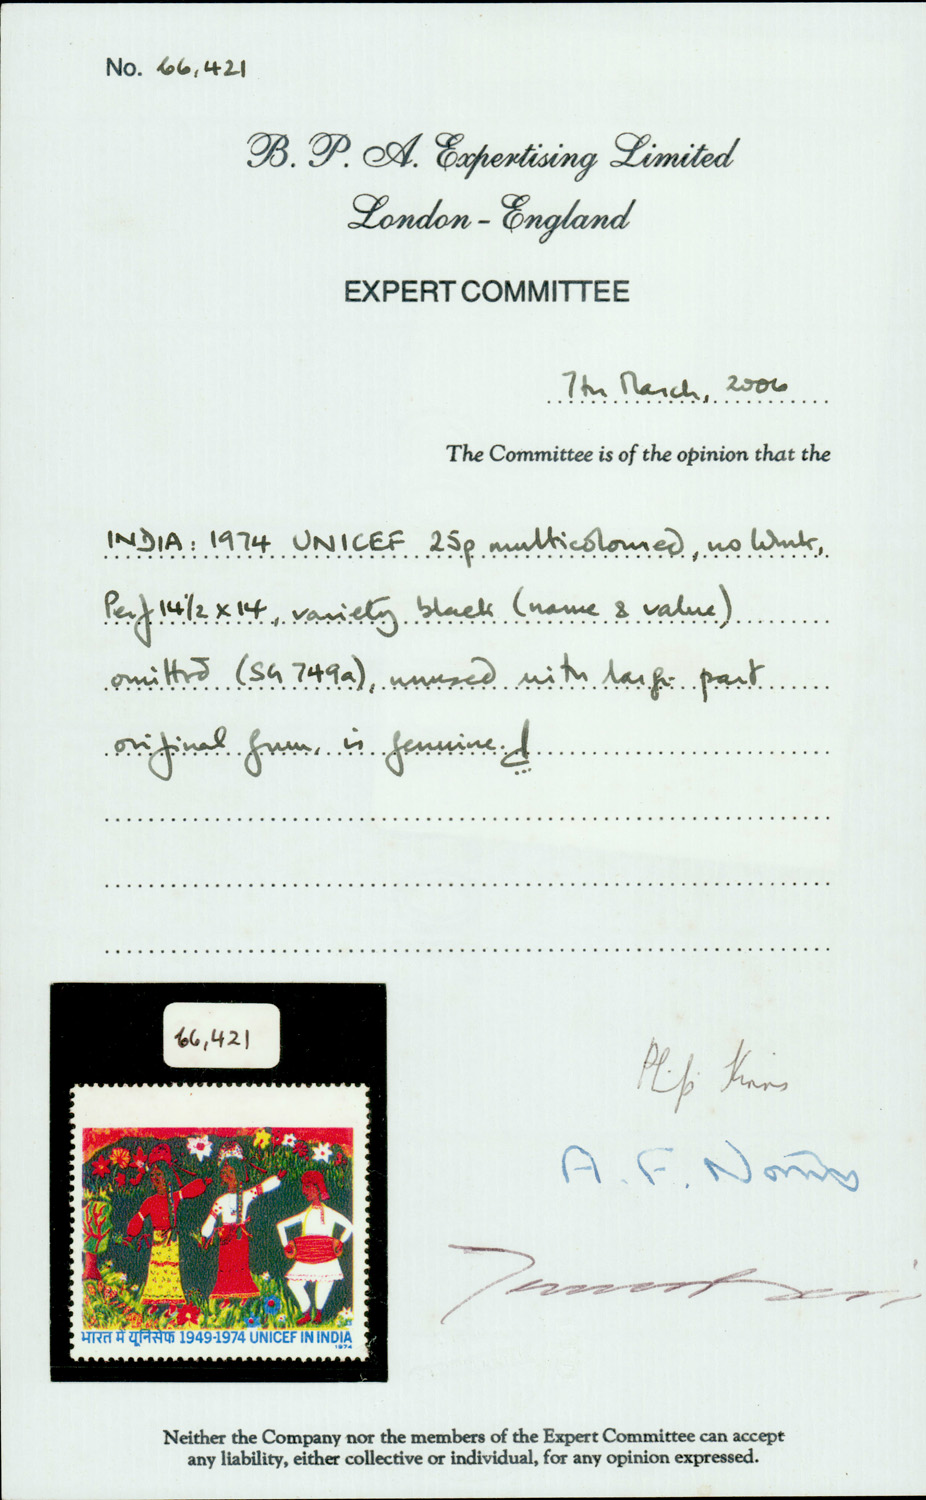 No. 66,421
B. P. A. Expertising Limited
London - England
EXPERT COMMITTEE
7th March, 2006
The Committee is of the opinion that the
INDIA: 1974 UNICEF 25p multicoloured, no wmk,
Perf 14½ x 14, variety black (name & value)
omitted (SG 749a), unused with large part
original gum, is genuine.
66,421
भारत में यूनिसेफ 1949-1974 UNICEF IN INDIA
1974
A. F. Norris
Neither the Company nor the members of the Expert Committee can accept
any liability, either collective or individual, for any opinion expressed.